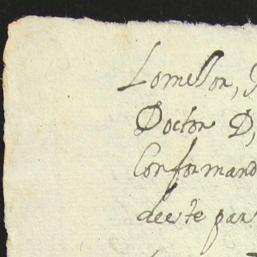 Lomellon,
Doctor D,
Conformand
deeste par